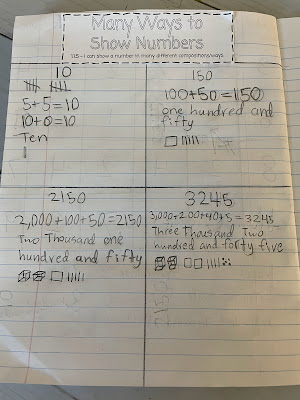 Many Ways to
Show Numbers
10
5+5=10
10+0=10
Ten
150
100+50=150
one hundred and
fifty
2150
2,000+100+50=2150
Two Thousand one
hundred and fifty
3245
3,000+200+40+5=3245
Three thousand Two
hundred and forty five